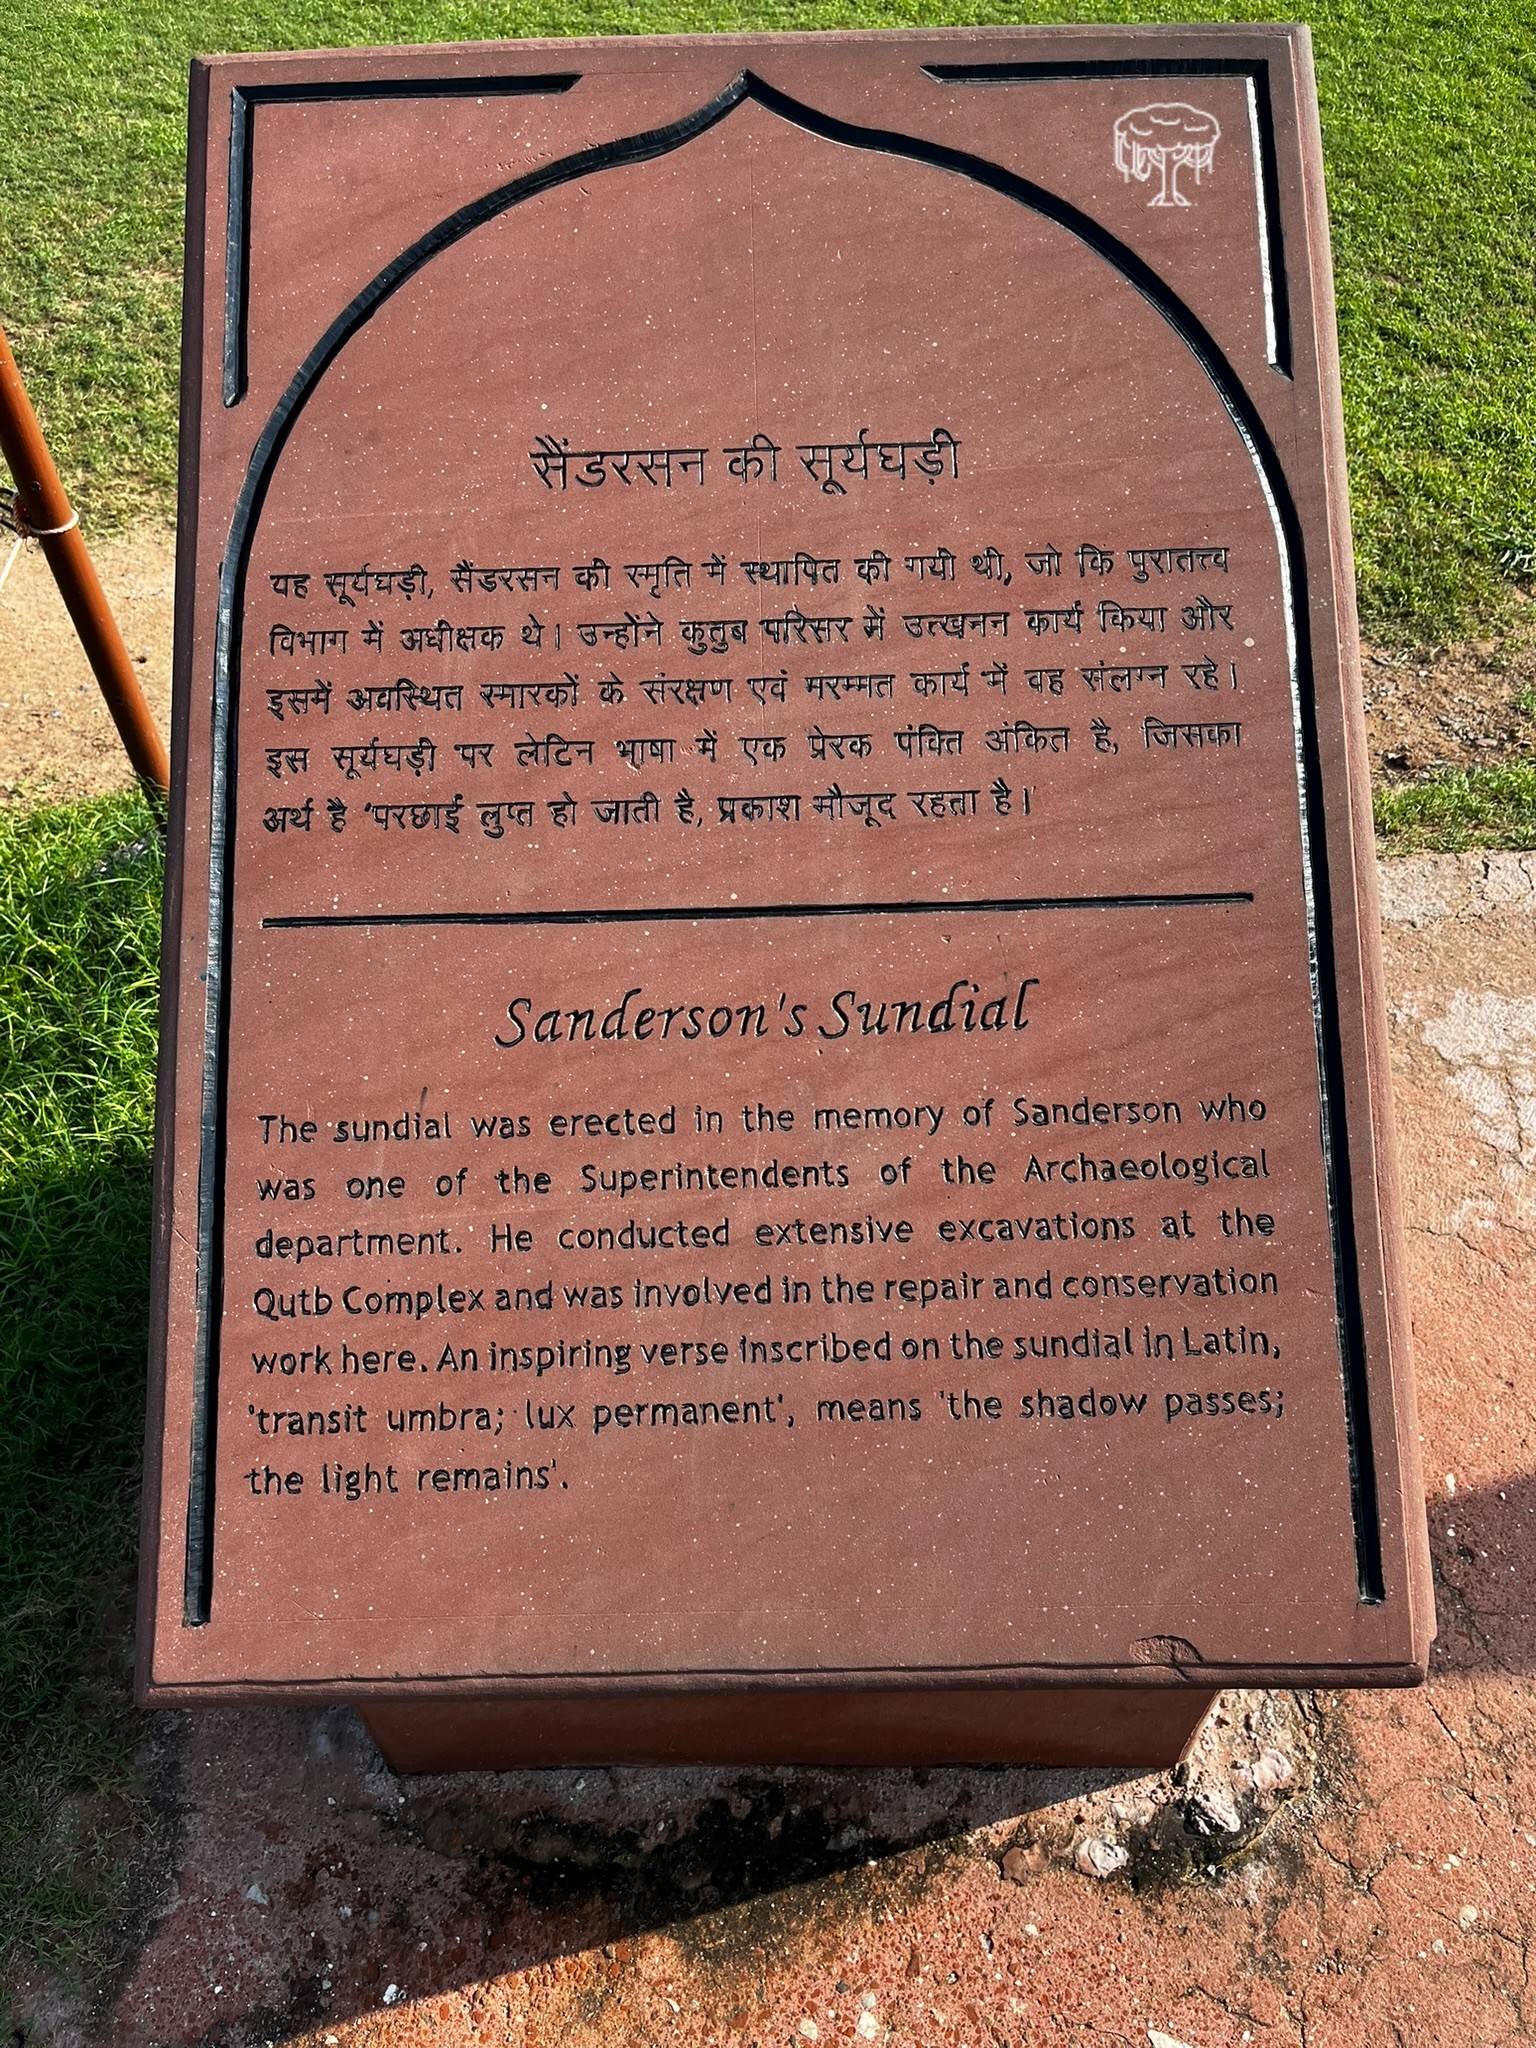 सैंडरसन की सूर्यघड़ी
यह सूर्यघड़ी, सैंडरसन की स्मृति में स्थापित की गयी थी, जो कि पुरातत्त्व
विभाग में अधीक्षक थे। उन्होंने कुतुब परिसर में उत्खनन कार्य किया और
इसमें अवस्थित स्मारकों के संरक्षण एवं मरम्मत कार्य में वह संलग्न रहे।
इस सूर्यघड़ी पर लेटिन भाषा में एक प्रेरक पंक्ति अंकित है, जिसका
अर्थ है 'परछाई लुप्त हो जाती है, प्रकाश मौजूद रहता है।'
Sanderson's Sundial
The sundial was erected in the memory of Sanderson who
was one of the Superintendents of the Archaeological
department. He conducted extensive excavations at the
Qutb Complex and was involved in the repair and conservation
work here. An inspiring verse inscribed on the sundial in Latin,
'transit umbra; lux permanent', means 'the shadow passes;
the light remains'.